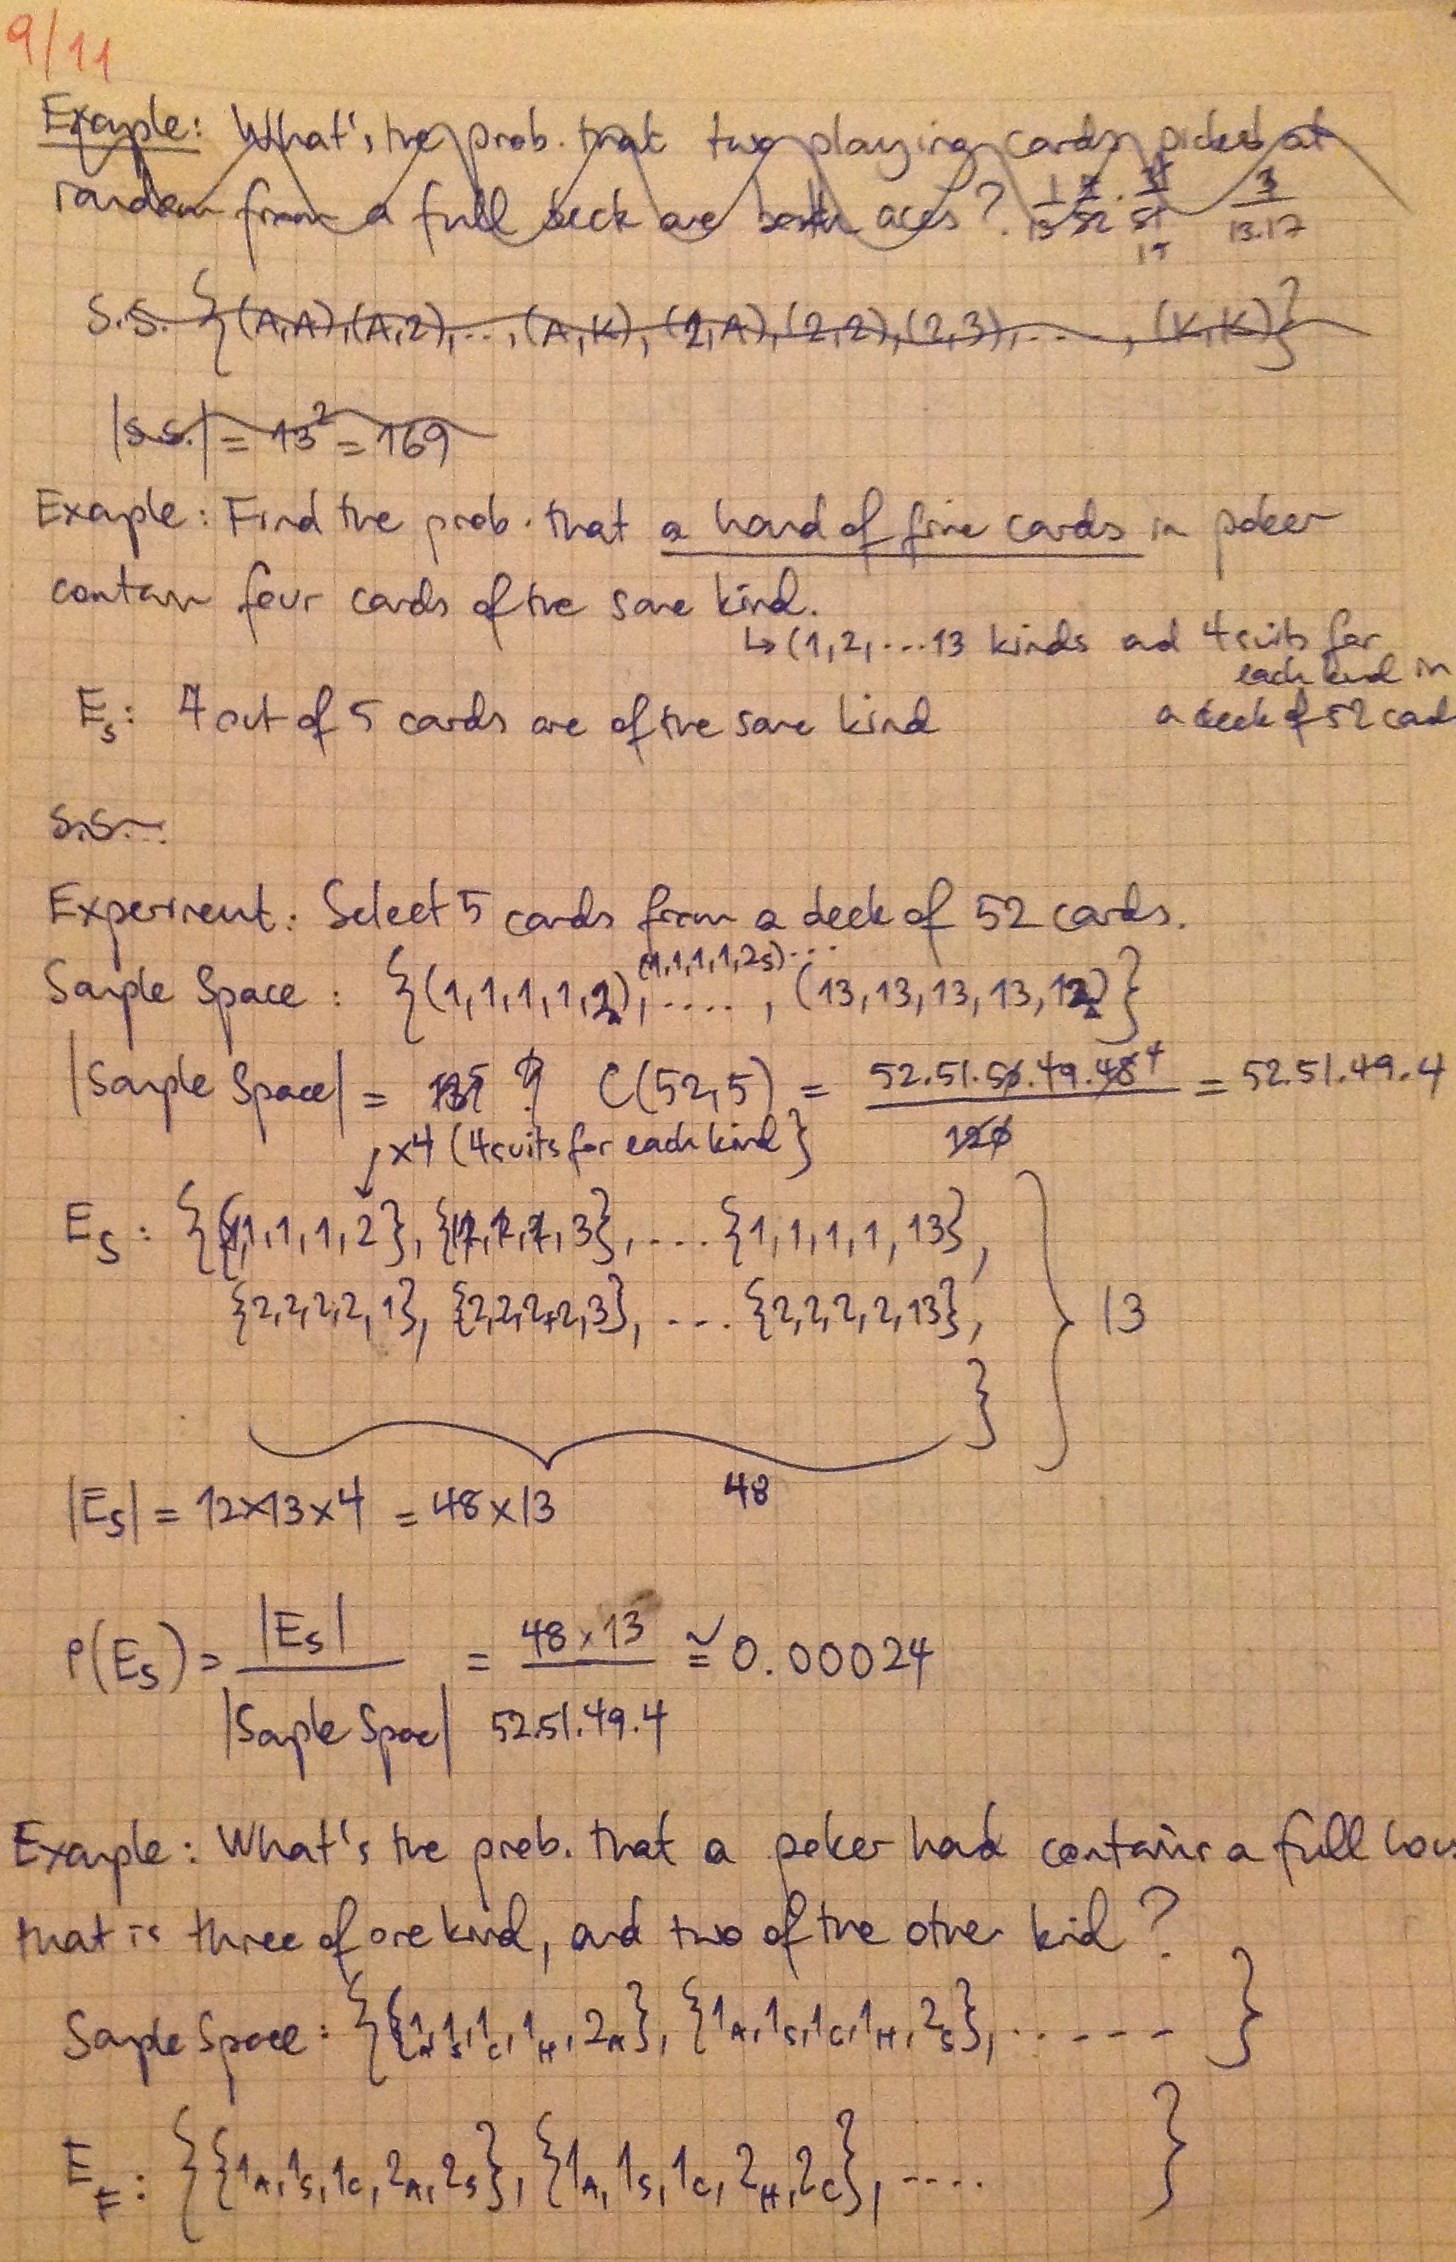 9/11
Example: What's the prob. that two playing cards picked at
random from a full deck are both aces? 3/13.17
S.S. {(A,A),(A,2),...,(A,K),(2,A),(2,2),(2,3),...,(K,K)}
|S.S.| = 13² = 169
Example: Find the prob. that a hand of five cards in poker
contain four cards of the same kind.
↳ (1,2,...13 kinds and 4 suits for
each kind in
a deck of 52 card
E_S: 4 out of 5 cards are of the same kind
S.S.:
Experiment: Select 5 cards from a deck of 52 cards.
(1,1,1,1,2s)...
Sample Space: {(1,1,1,1,2),....,(13,13,13,13,12)}
|Sample Space| = ? C(52,5) = 52.51.50.49.48 4 / 120 = 52.51.49.4
x4 (4 suits for each kind}
E_S: {{1,1,1,1,2},{1,1,1,1,3},...{1,1,1,1,13},
{2,2,2,2,1},{2,2,2,2,3},...{2,2,2,2,13},
} 13
48
|E_S| = 12x13x4 = 48x13
P(E_S) = |E_S| / |Sample Space| = 48x13 / 52.51.49.4 ≅ 0.00024
Example: What's the prob. that a poker hand contains a full hous
that is three of one kind, and two of the other kind?
Sample Space: {{1_A,1_S,1_C,1_H,2_A},{1_A,1_S,1_C,1_H,2_S},...... }
E_F: {{1_A,1_S,1_C,2_A,2_S},{1_A,1_S,1_C,2_H,2_C},.... }